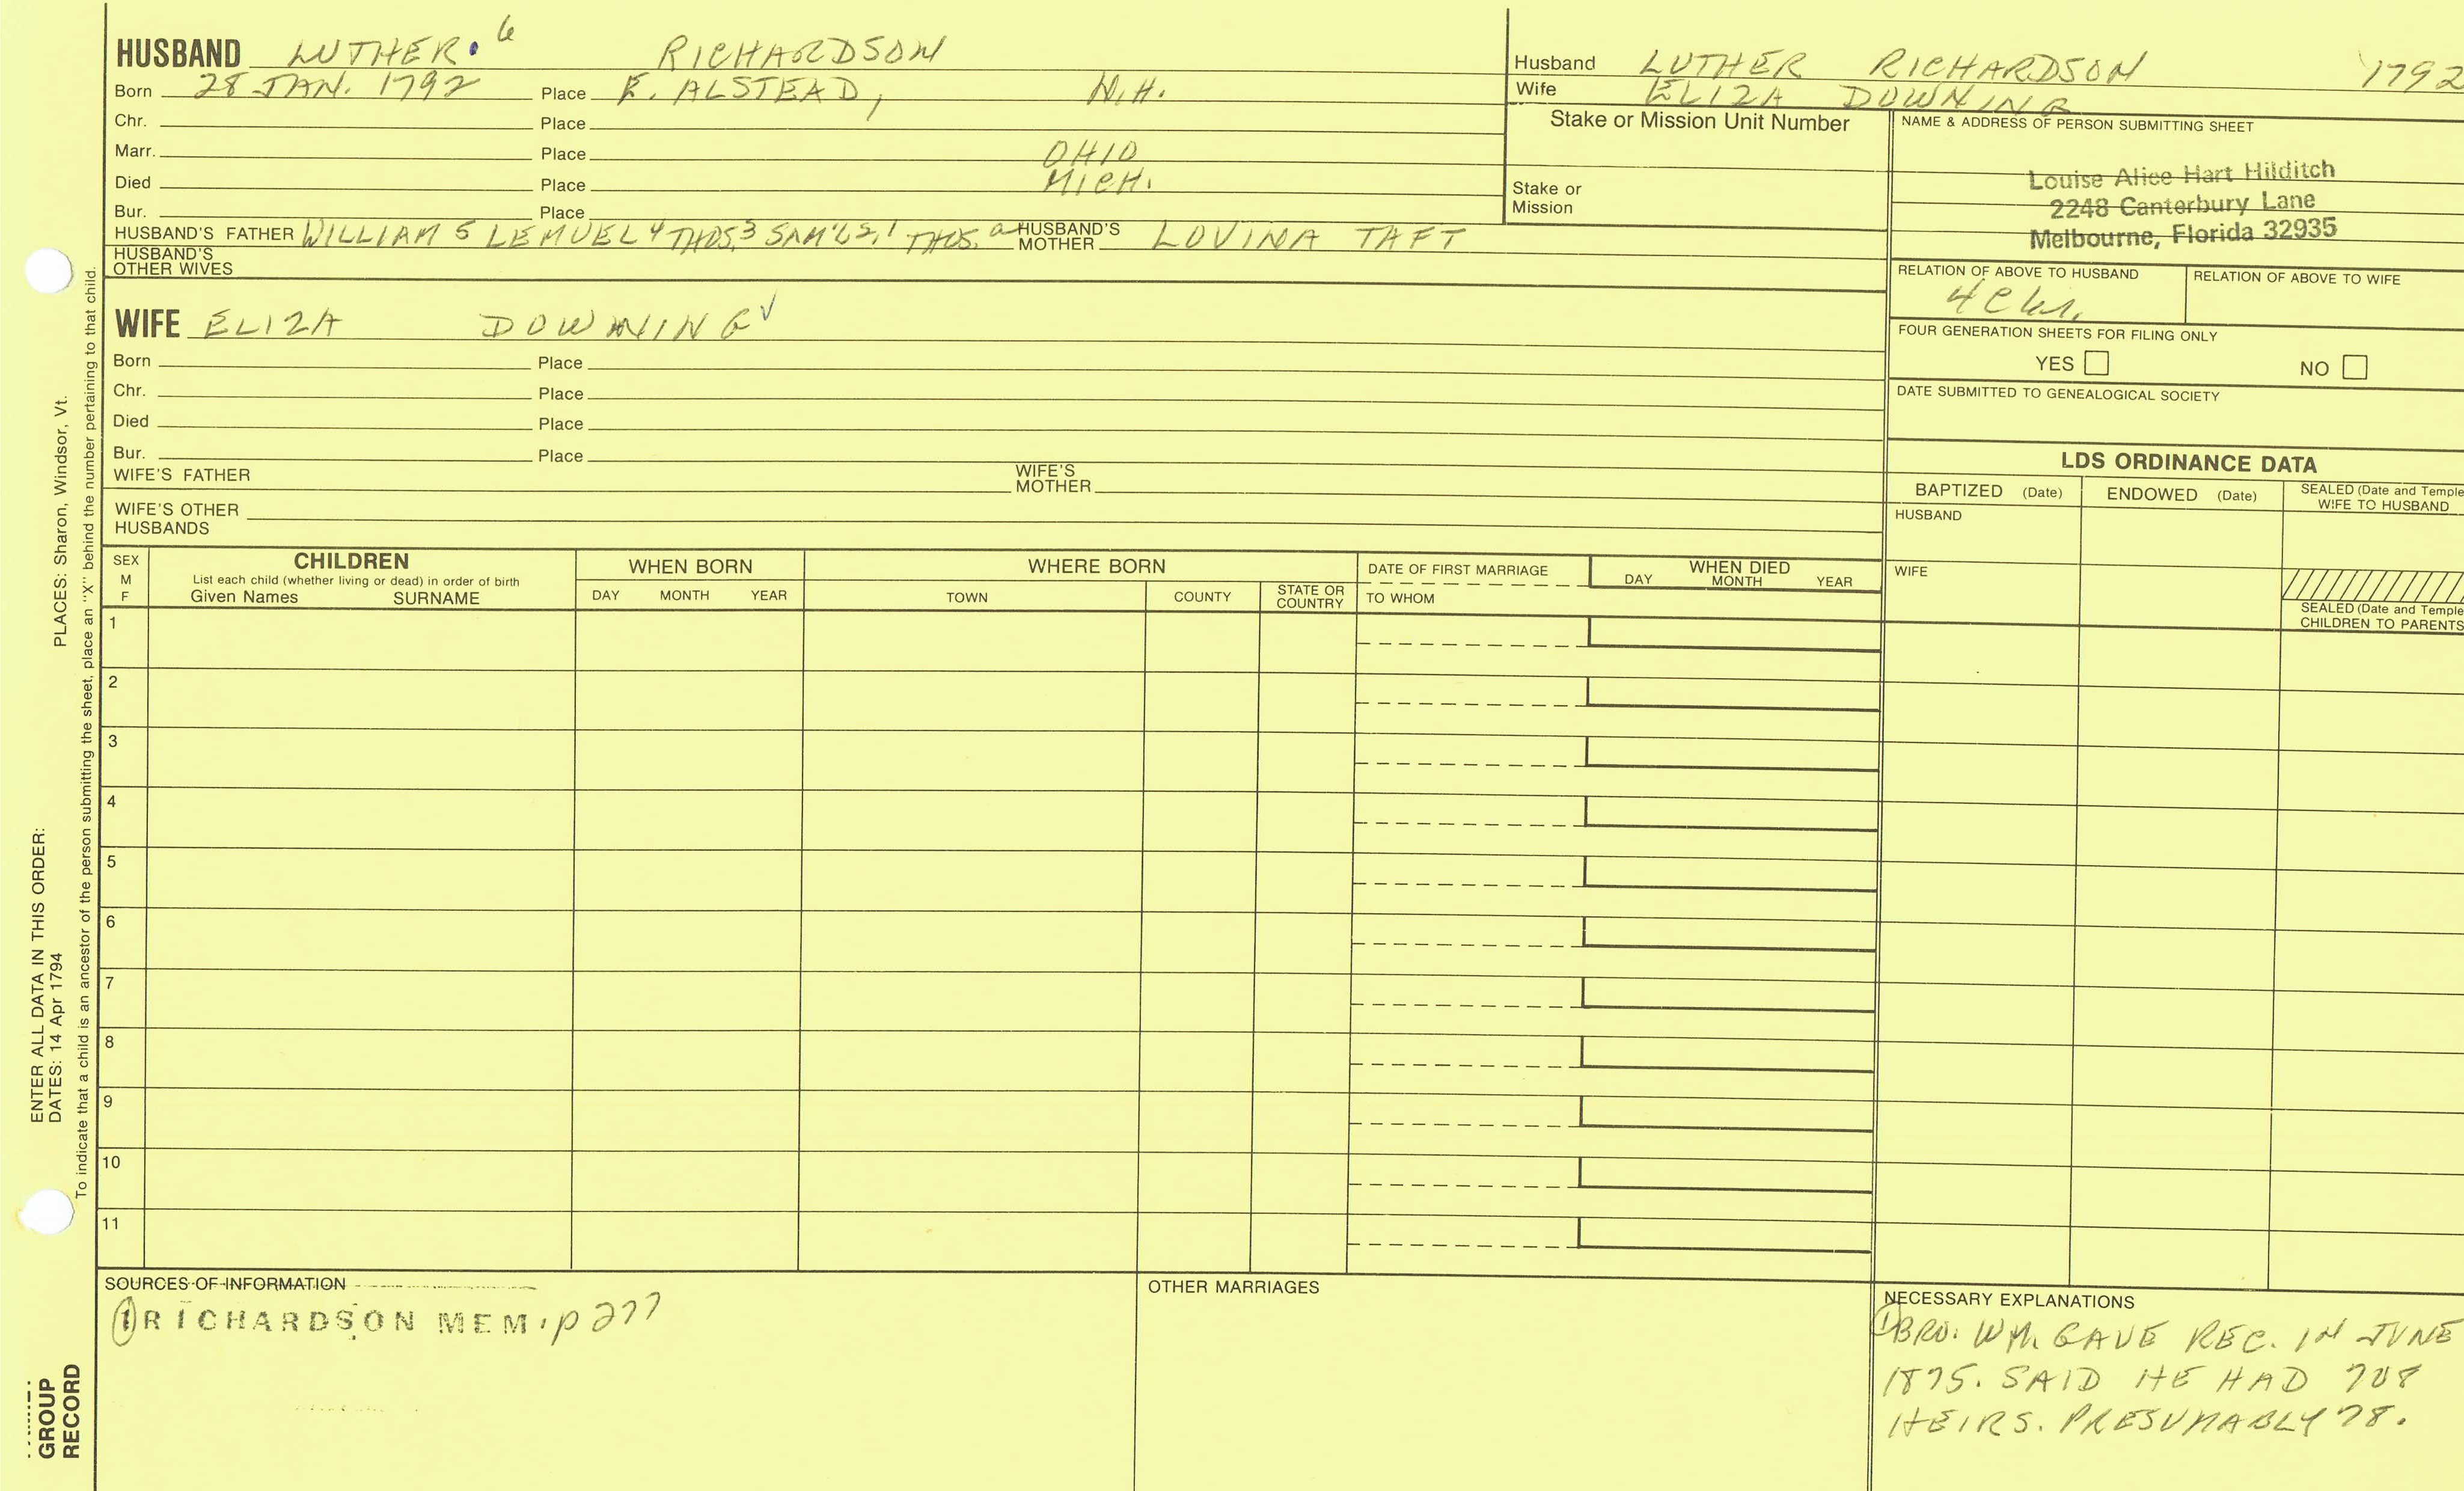 HUSBAND LUTHER. 6 RICHARDSON
Born 28 JAN. 1792 Place E. ALSTEAD, N.H.
Chr. Place
Marr. Place OHIO
Died Place MICH.
Bur. Place
HUSBAND'S FATHER WILLIAM 5 LEMUEL 4 THOS. 3 SAM'L 2, 1 THOS. a HUSBAND'S MOTHER LOVINA TAFT
HUSBAND'S OTHER WIVES
WIFE ELIZA DOWNING ✓
Born Place
Chr. Place
Died Place
Bur. Place
WIFE'S FATHER WIFE'S MOTHER
WIFE'S OTHER HUSBANDS
Husband LUTHER RICHARDSON 1792
Wife ELIZA DOWNING
Stake or Mission Unit Number
Stake or Mission
NAME & ADDRESS OF PERSON SUBMITTING SHEET
Louise Alice Hart Hilditch
2248 Canterbury Lane
Melbourne, Florida 32935
RELATION OF ABOVE TO HUSBAND RELATION OF ABOVE TO WIFE
FOUR GENERATION SHEETS FOR FILING ONLY
YES NO
DATE SUBMITTED TO GENEALOGICAL SOCIETY
LDS ORDINANCE DATA
BAPTIZED (Date) ENDOWED (Date) SEALED (Date and Temple
WIFE TO HUSBAND
HUSBAND
WIFE
SEALED (Date and Temple
CHILDREN TO PARENTS
SEX
M
F
CHILDREN
List each child (whether living or dead) in order of birth
Given Names SURNAME
WHEN BORN
DAY MONTH YEAR
WHERE BORN
TOWN COUNTY STATE OR COUNTRY
DATE OF FIRST MARRIAGE
TO WHOM
WHEN DIED
DAY MONTH YEAR
1
2
3
4
5
6
7
8
9
10
11
SOURCES OF INFORMATION
1 RICHARDSON MEM. p 277
OTHER MARRIAGES
NECESSARY EXPLANATIONS
1 BRO. WM. GAVE REC. IN JUNE
1875. SAID HE HAD 708
HEIRS. PRESUMABLY 78.
ENTER ALL DATA IN THIS ORDER:
DATES: 14 Apr 1794 PLACES: Sharon, Windsor, Vt.
To indicate that a child is an ancestor of the person submitting the sheet, place an "X" behind the number pertaining to that child.
GROUP
RECORD